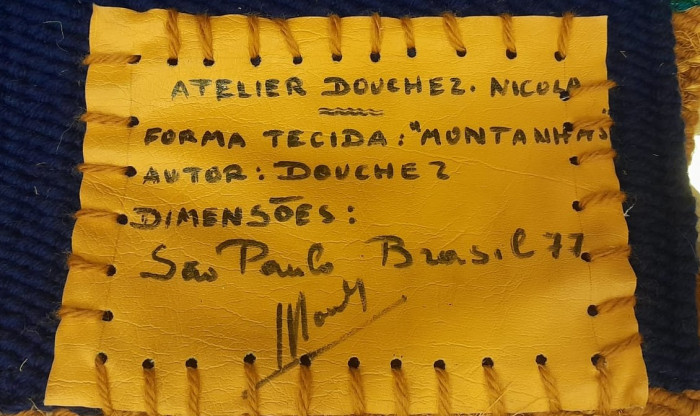 ATELIER DOUCHEZ. NICOLA
FORMA TECIDA: "MONTANHAS
AUTOR: DOUCHEZ
DIMENSÕES:
Sao Paulo Brasil 77